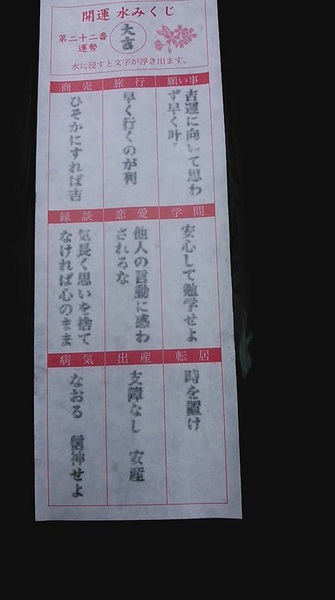 開運 水みくじ
第二十二番
運勢
大吉
水に浸すと文字が浮き出ます。
願い事
吉運に向いて思わ
ず早く叶う
旅行
早く行くのが利
商売
ひそかにすれば吉
学問
安心して勉学せよ
恋愛
他人の言動に惑わ
されるな
縁談
気長く思いを捨て
なければ心のまま
転居
時を置け
出産
支障なし 安産
病気
なおる 信神せよ